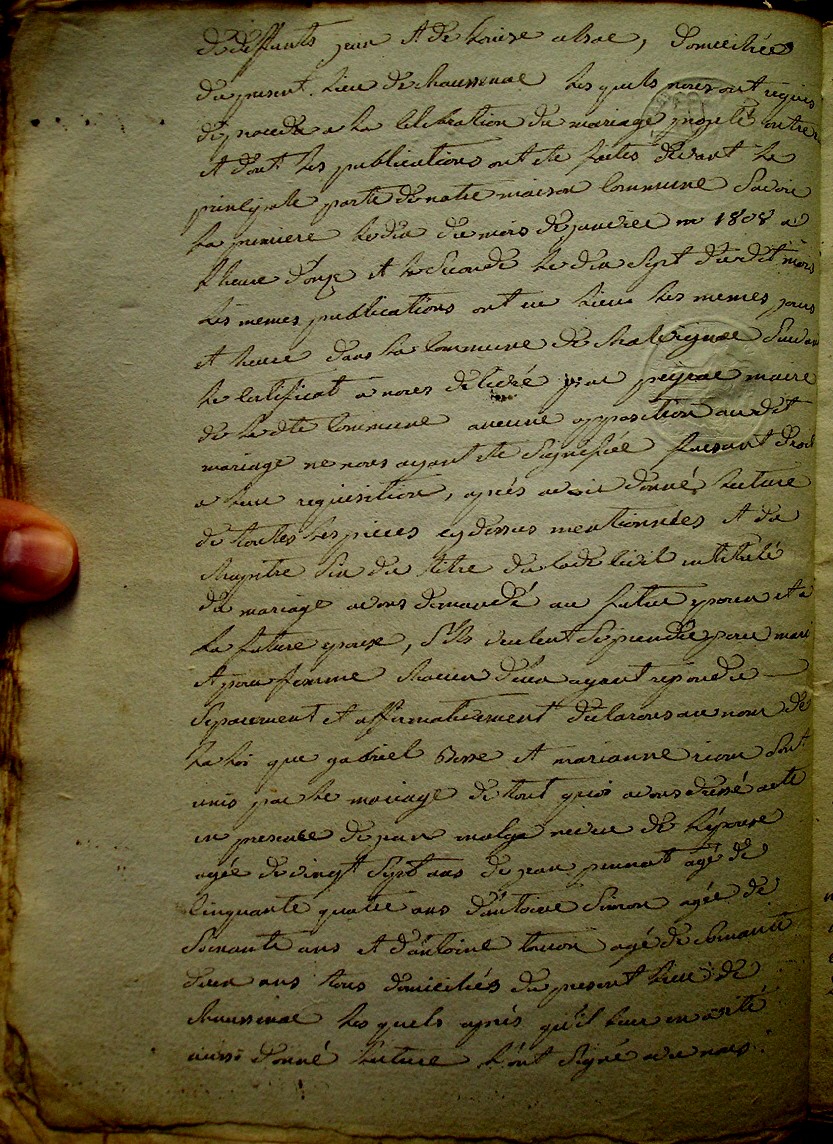 de deffunts jean et de Louise alsac, domiciliée
du present lieu de chaussenac Lesquels nous ont requis
de proceder a La Celebration du mariage projetté entre
et dont Les publications ont ete faites devant La
principale porte de notre maison Commune Savoir
La premiere Le dix du mois de janvier mr 1808 a
L'heure d'onze et La Seconde Le dix sept du dit mois
Les memes publications ont eu Lieu Les memes jours
et heure dans La Commune de chalvignac Suivant
Le Certificat a nous délivré par peyrac maire
de La dte Commune aucune opposition au dit
mariage ne nous ayant ete Signifiée faisant droit
a Leur requisition, après avoir donné Lecture
de toutes Les pieces cy dessus mentionnées et du
Chapitre Six du titre du Code Civil intitulé
du mariage avons demandé au futur epoux et a
La future epouse, S'ils veulent Se prendre pour mari
et pour femme chacun d'eux ayant repondu
Separement et affirmativement declarons au nom de
La Loi que gabriel Besse et marianne rioux Sont
unis par Le mariage de tout quoi avons dressé acte
en presence de jean malga neveu de L'épouse
agée de vingt Sept ans de jean peuvrat agé de
Cinquante quatre ans d'antoine Simon agée de
Soixante ans et d'antoine agé de Soixante
deux ans tous domiciliés du present Lieu de
chaussenac Les quels après qu'il Leur en a été
aussi donné Lecture L'ont Signé avec nous.